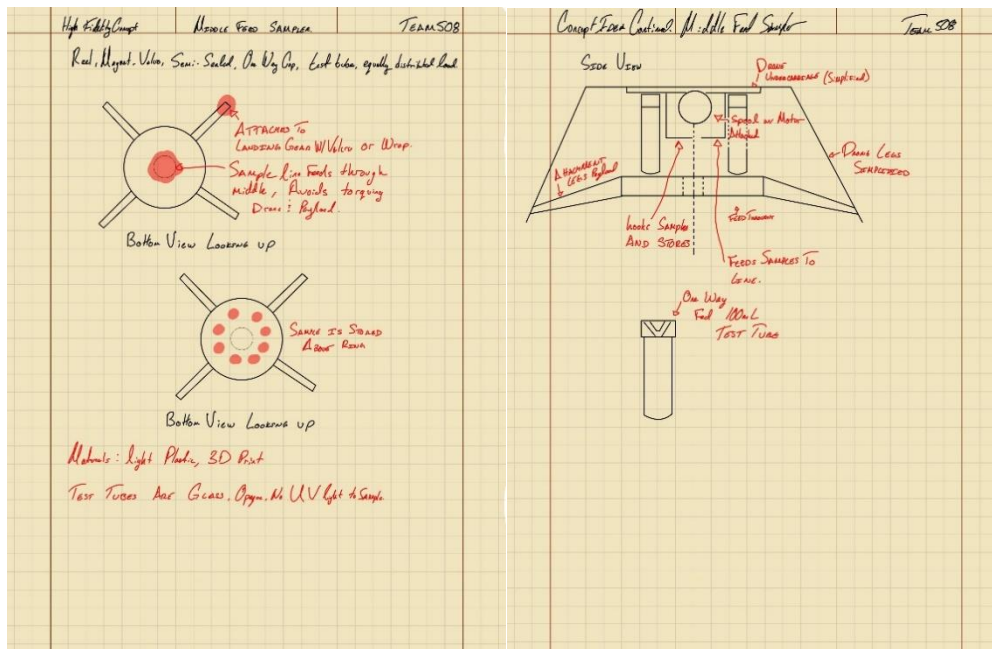 High Fidelity Concept
MIDDLE FEED SAMPLER
TEAM 508
Reel, Magnet, Velcro, Semi-Sealed, One Way Cap, test tubes, equally distributed load
ATTACHED TO
LANDING GEAR W/ Velcro or Wrap.
Sample line Feeds through
middle, Avoids torquing
Drone : Payload.
Bottom View Looking up
SAMPLE IS STORED
ABOVE RING
Bottom View Looking up
Materials: light Plastic, 3D Print
TEST TUBES ARE GLASS, Opaque, No UV light to Sample
Concept Idea Continued: Middle Feed Sampler
TEAM 508
SIDE VIEW
DRONE
UNDERCARRIAGE (Simplified)
Spool w/ Motor
Attached
DRONE LEGS
SIMPLIFIED
ATTACHMENT
LEGS Payload
FEED THROUGH
hooks SAMPLES
AND STORES
FEEDS SAMPLES TO
LINE.
One Way
Feed 100mL
TEST TUBE